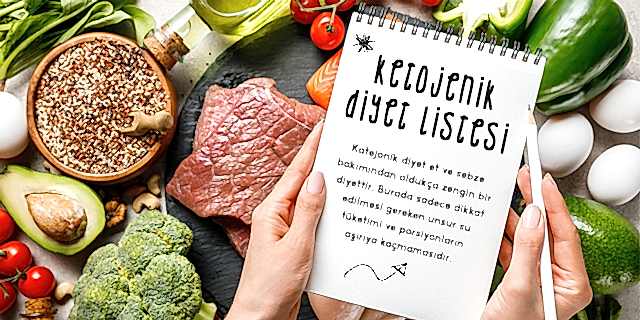 ketojenik
diyet listesi
Katejonik diyet et ve sebze
bakımından oldukça zengin bir
diyettir. Burada sadece dikkat
edilmesi gereken unsur su
tüketimi ve porsiyonların
aşırıya kaçmamasıdır.